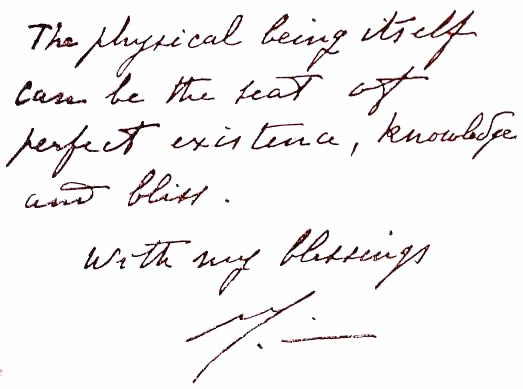 The physical being itself
can be the seat of
perfect existence, knowledge
and bliss.
With my blessings